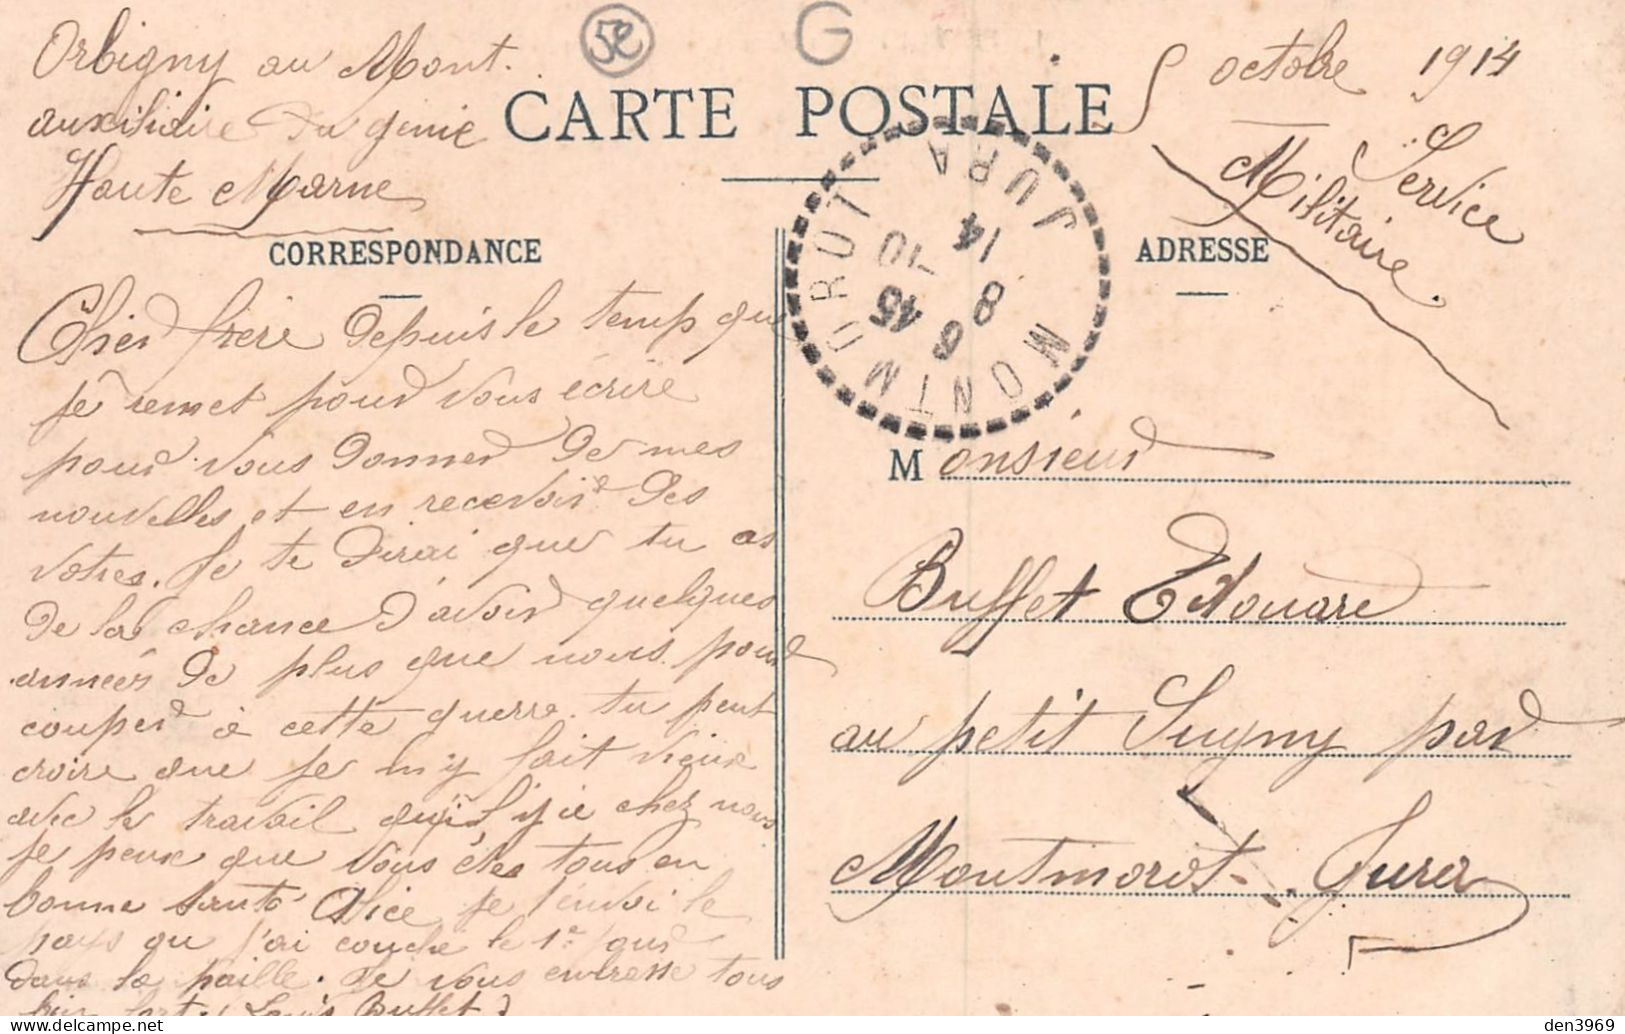 Orbigny au Mont.
auxiliaire du génie
Haute Marne
52
G
5 octobre 1914
Service
Militaire.
CARTE POSTALE
CORRESPONDANCE
ADRESSE
MONTMOROT JURA
6 45
8 -10
14
Cher frère depuis le temps que
je remet pour vous écrire
pour vous donner de mes
nouvelles et en recevoir des
votres. Je te dirai que tu as
de la chance d'avoir quelques
années de plus que nous pour
couper à cette guerre. tu peut
croire que je m'y fait vieux
avec le travail qu'il y a chez nous
je pense que vous étes tous en
bonne santé Alice je t'envoi le
pays ou j'ai couché le 1er jour
dans la paille. Je vous embrasse tous
bien fort. Louis Buffet
Monsieur
Buffet Edouard
au petit Sugny par
Montmorot. Jura
den3969